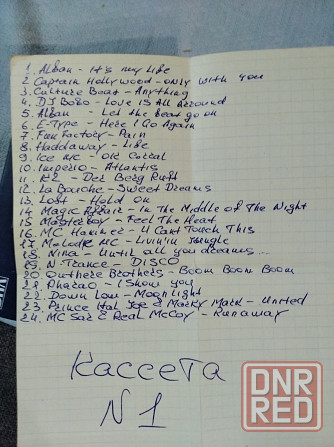 1. Alban - It's my Life
2. Captain Hollywood - Only with you
3. Culture Beat - Anything
4. DJ Bobo - Love Is All Around
5. Alban - Let the beat go on
6. E-Type - Here I Go Again
7. Fun Factory - Pain
8. Haddaway - Life
9. Ice MC - Old Corral
10. Imperio - Atlantis
11. K2 - Der Berg Ruft
12. La Bouche - Sweet Dreams
13. Lost - Hold On
14. Magic Affair - In The Middle of The Night
15. Masterboy - Feel The Heat
16. MC Hammer - U Cant Touch This
17. Melodie MC - Livin'in Jungle
18. Nina - Until all you dreams...
19. N-Trance - DISCO
20. Outhere Brothers - Boom Boom Boom
21. Pharao - I Show you
22. Down Low - Moonlight
23. Prince Ital Joe & Marky Mark - United
24. MC Sar & Real McCoy - Runaway
Кассета
N1
DNR
RED